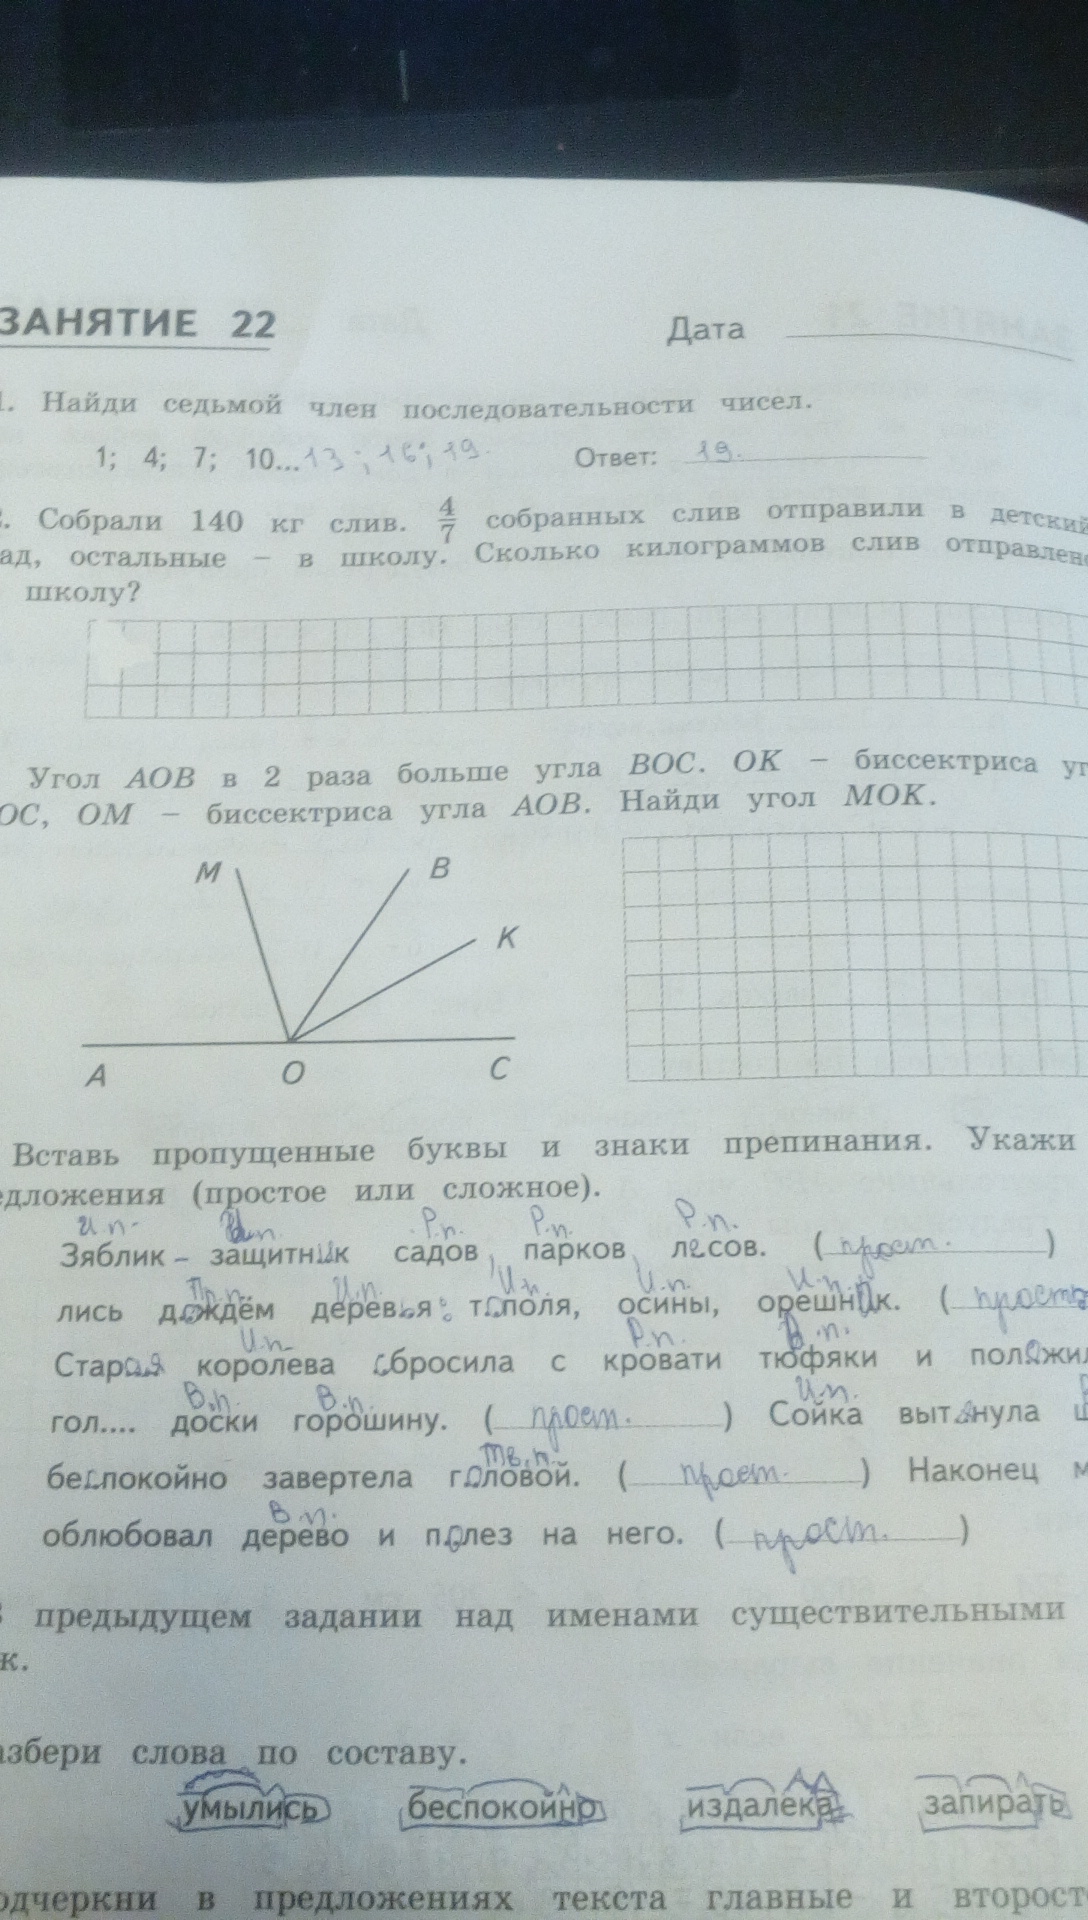 ЗАНЯТИЕ 22
Дата
1. Найди седьмой член последовательности чисел.
1; 4; 7; 10...13; 16; 19. Ответ: 19.
Собрали 140 кг слив. 4/7 собранных слив отправили в детский
ад, остальные – в школу. Сколько килограммов слив отправлено
школу?
Угол AOB в 2 раза больше угла BOC. OK – биссектриса уг
OC, OM – биссектриса угла AOB. Найди угол MOK.
M
B
K
A
O
C
Вставь пропущенные буквы и знаки препинания. Укажи
едложения (простое или сложное).
И.п. И.п. Р.п. Р.п. Р.п.
Зяблик – защитник садов, парков, лесов. (прост.)
Пр.п. И.п. И.п. И.п. И.п.
лись дождём деревья: тополя, осины, орешник. (прост
И.п. Р.п. В.п.
Старая королева сбросила с кровати тюфяки и положил
В.п. В.п. И.п.
гол.... доски горошину. (прост.) Сойка вытянула ш
Тв.п.
беспокойно завертела головой. (прост.) Наконец м
В.п.
облюбовал дерево и полез на него. (прост.)
предыдущем задании над именами существительными
к.
азбери слова по составу.
умылись беспокойно издалека запирать
одчеркни в предложениях текста главные и второст